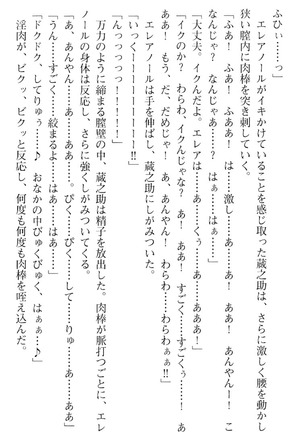 ふひぃ……っ」
　エレアノールがイキかけていることを感じ取った蔵之助は、さらに激しく腰を動かし
狭い膣内に肉棒を突き刺していく。
「ふあ！　ふあ！　ふああ！　は……激し……あ……ああ！　ああ！　あんやん！　こ
なんじゃ？　なんじゃあ……？　はぁ……は……」
「大丈夫、イクんだよ。エレア……あ……くぅ……あ……ああ……あああ！」
「イクのか？　わらわ、イクんじゃな？　あ！　ああ！　すごく……すごくぅ……！
ああ！　もう、だ、だめじゃ！　あ、あんやん！　わらわ……わらわぁぁ！
「いっくーーーーーーーーー!!」
「んっっっっっ！！！！！」
　エレアノールは手を伸ばし、蔵之助にしがみついた。
　万力のように締まる膣壁の中、蔵之助は精子を放出した。肉棒が脈打つごとに、エレ
ノールの身体は反応し、さらに強くしがみついてくる。
「あ、あんやん……あ……ああ……。ぴく……ぴく……して……りゅ……あ……ああ」
「うん……すごく……絞まるよ……はぁ……はぁ……」
「ドクドク、してりゅぅ……♪　おなかの中ぴゅくぴゅく、はぁぁ……♪」
　淫肉が、ビクッ、ビクッと反応し、何度も何度も肉棒を咥え込んだ。